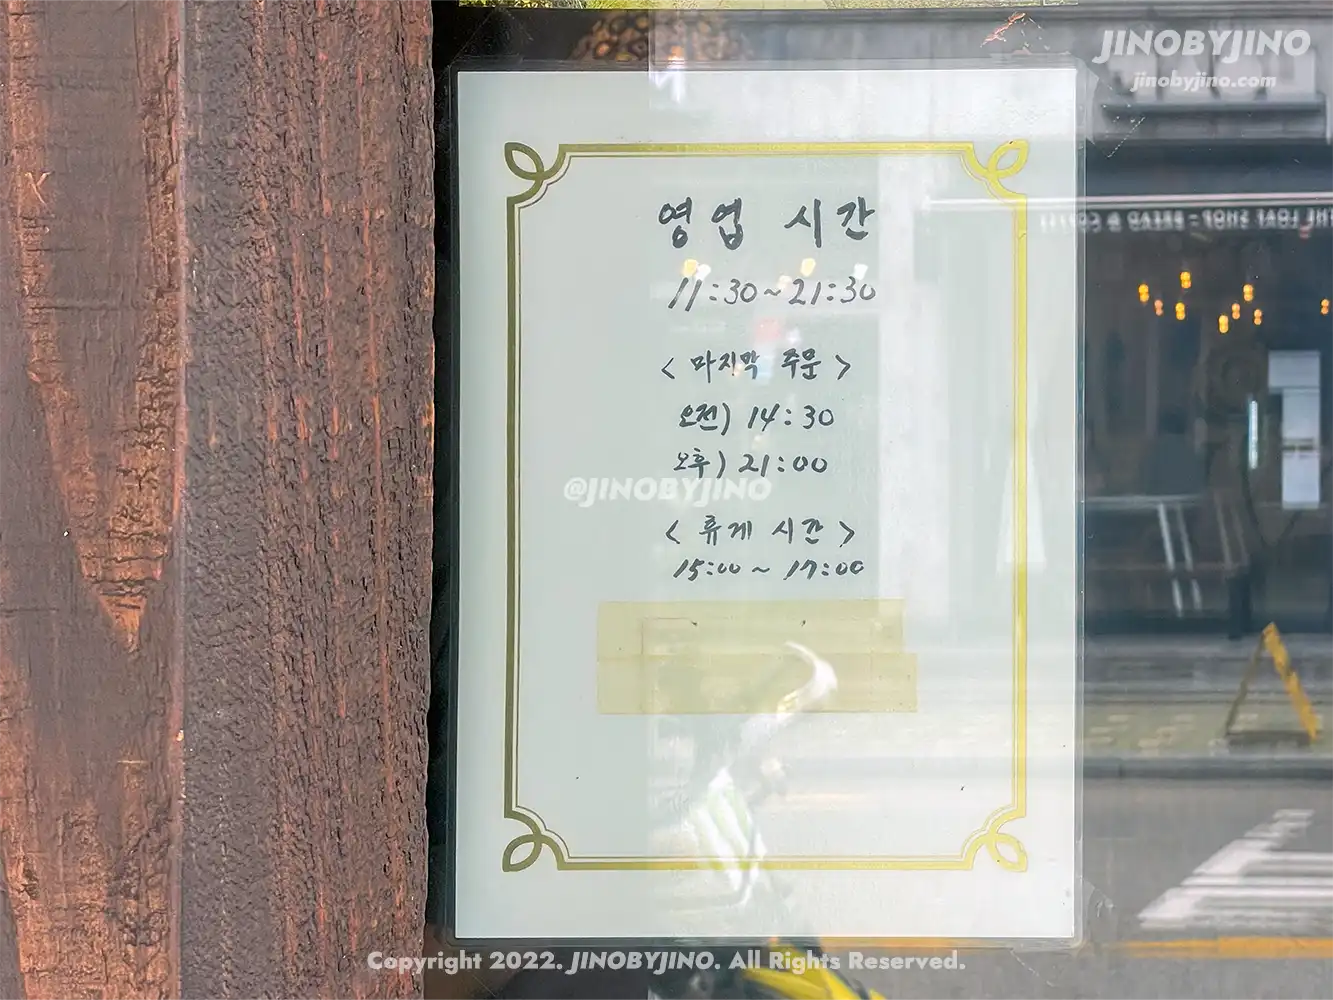 JINOBYJINO
jinobyjino.com
영업 시간
11:30~21:30
< 마지막 주문 >
오전) 14:30
오후) 21:00
@JINOBYJINO
< 휴게 시간 >
15:00 ~ 17:00
THE LOAF SHOP - BREAD & COFFEE
Copyright 2022. JINOBYJINO. All Rights Reserved.